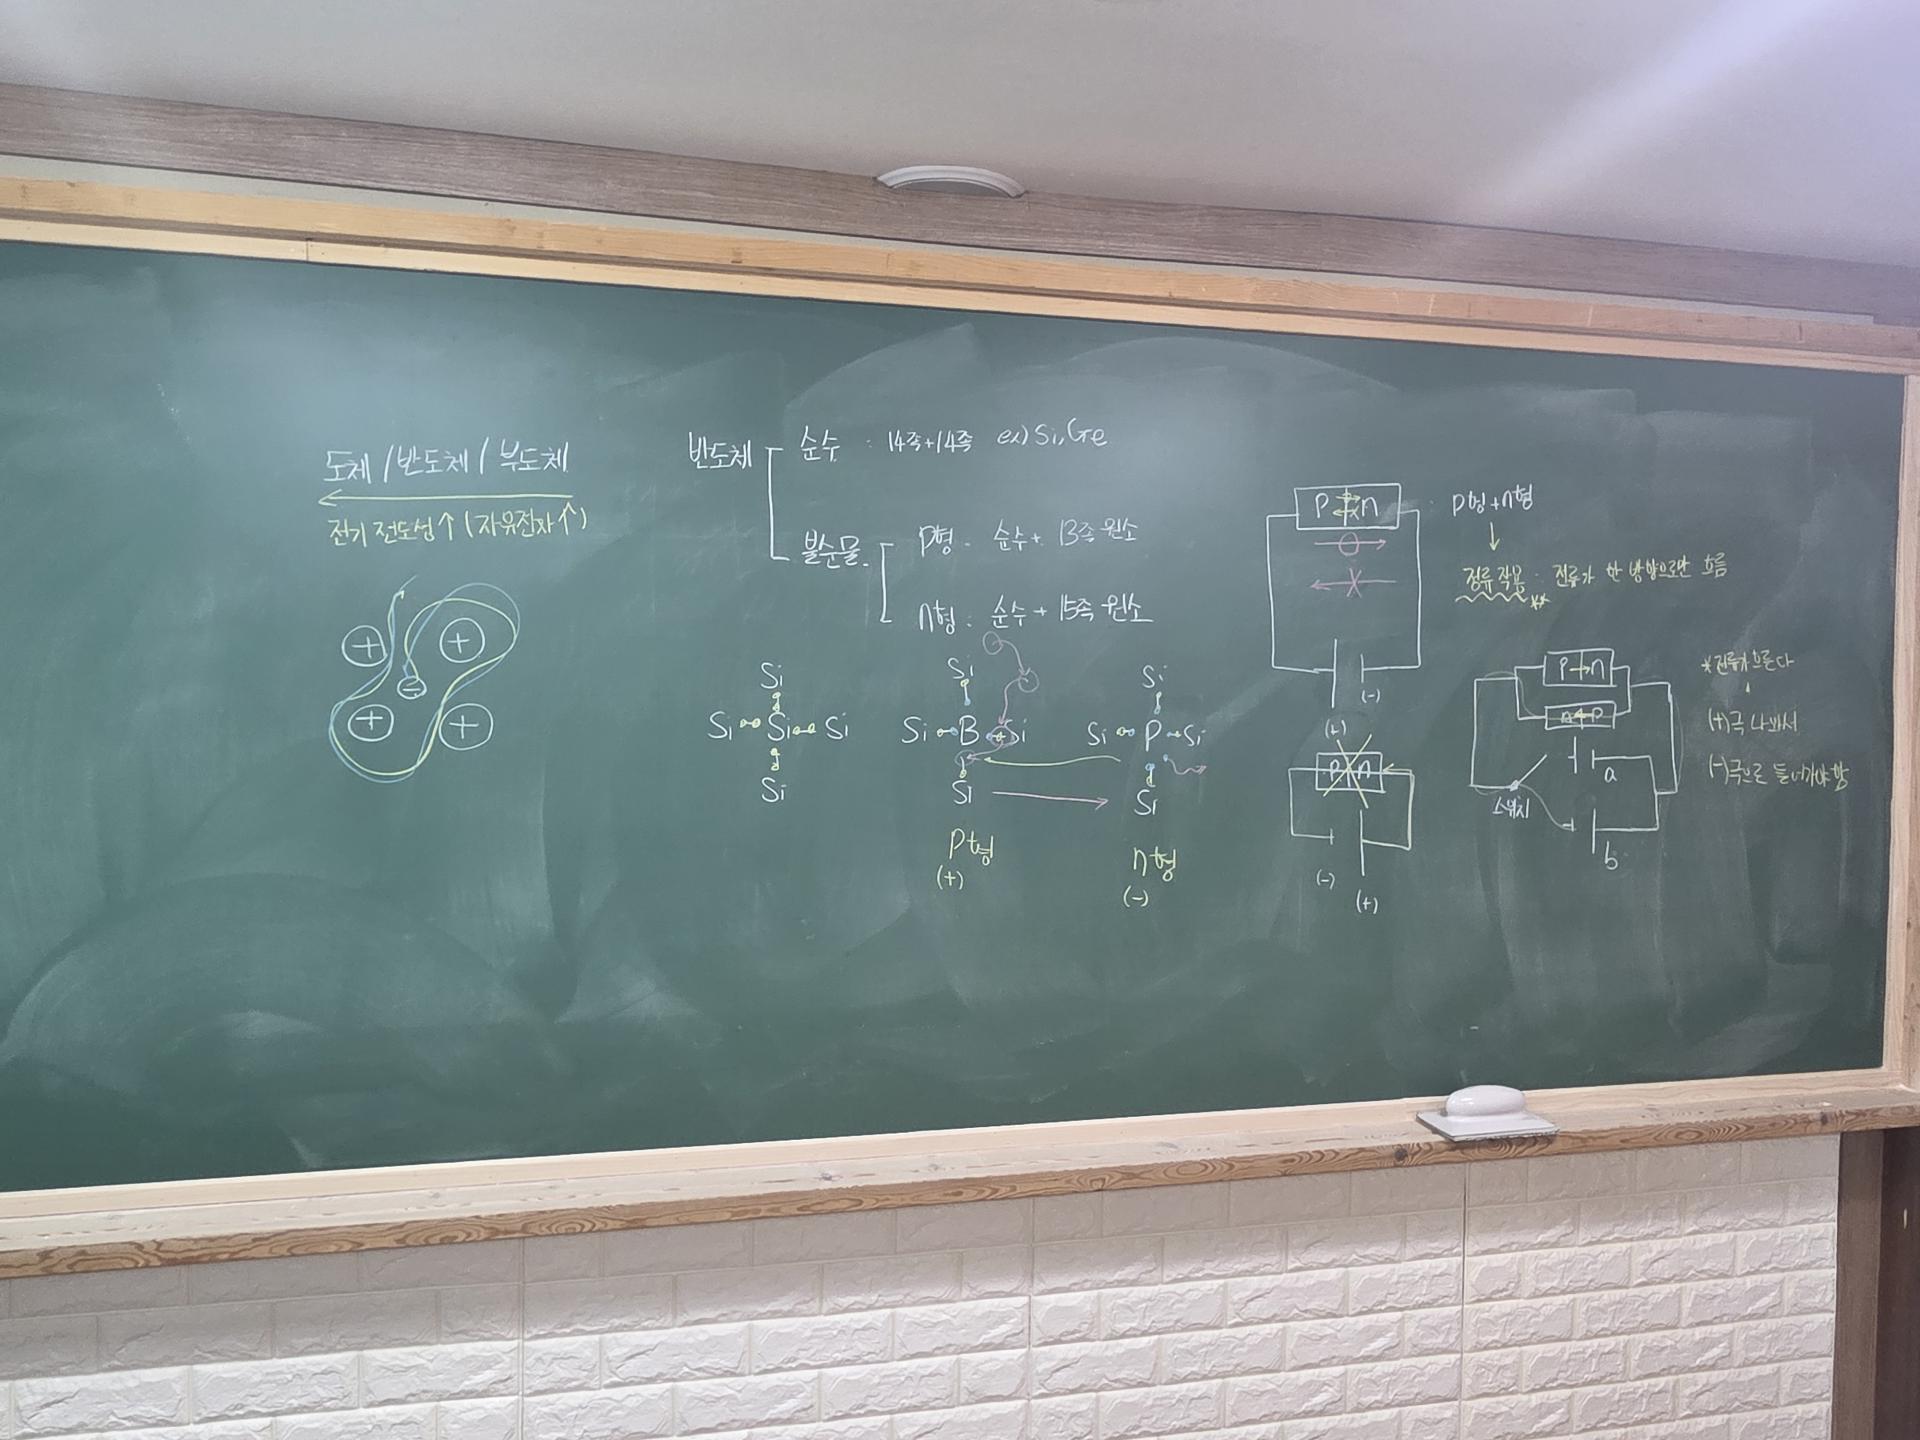 도체 / 반도체 / 부도체
전기 전도성↑ (자유전자↑)
+
+
-
+
+
반도체
순수 : 14족+14족 ex) Si, Ge
불순물
p형 : 순수 + 13족 원소
n형 : 순수 + 15족 원소
Si
Si Si Si
Si
Si
Si B + Si
Si
p형
(+)
Si
Si P Si
Si
n형
(-)
p n : p형+n형
정류작용 : 전류가 한 방향으로만 흐름
(-)
(+)
p n
(-)
(+)
p n
n p
a
스위치
b
*전류가 흐른다
(+)극 나와서
(-)극으로 들어가야 함